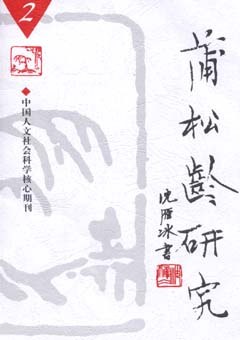 2
◆中国人文社会科学核心期刊
蒲松龄研究
沈雁冰書